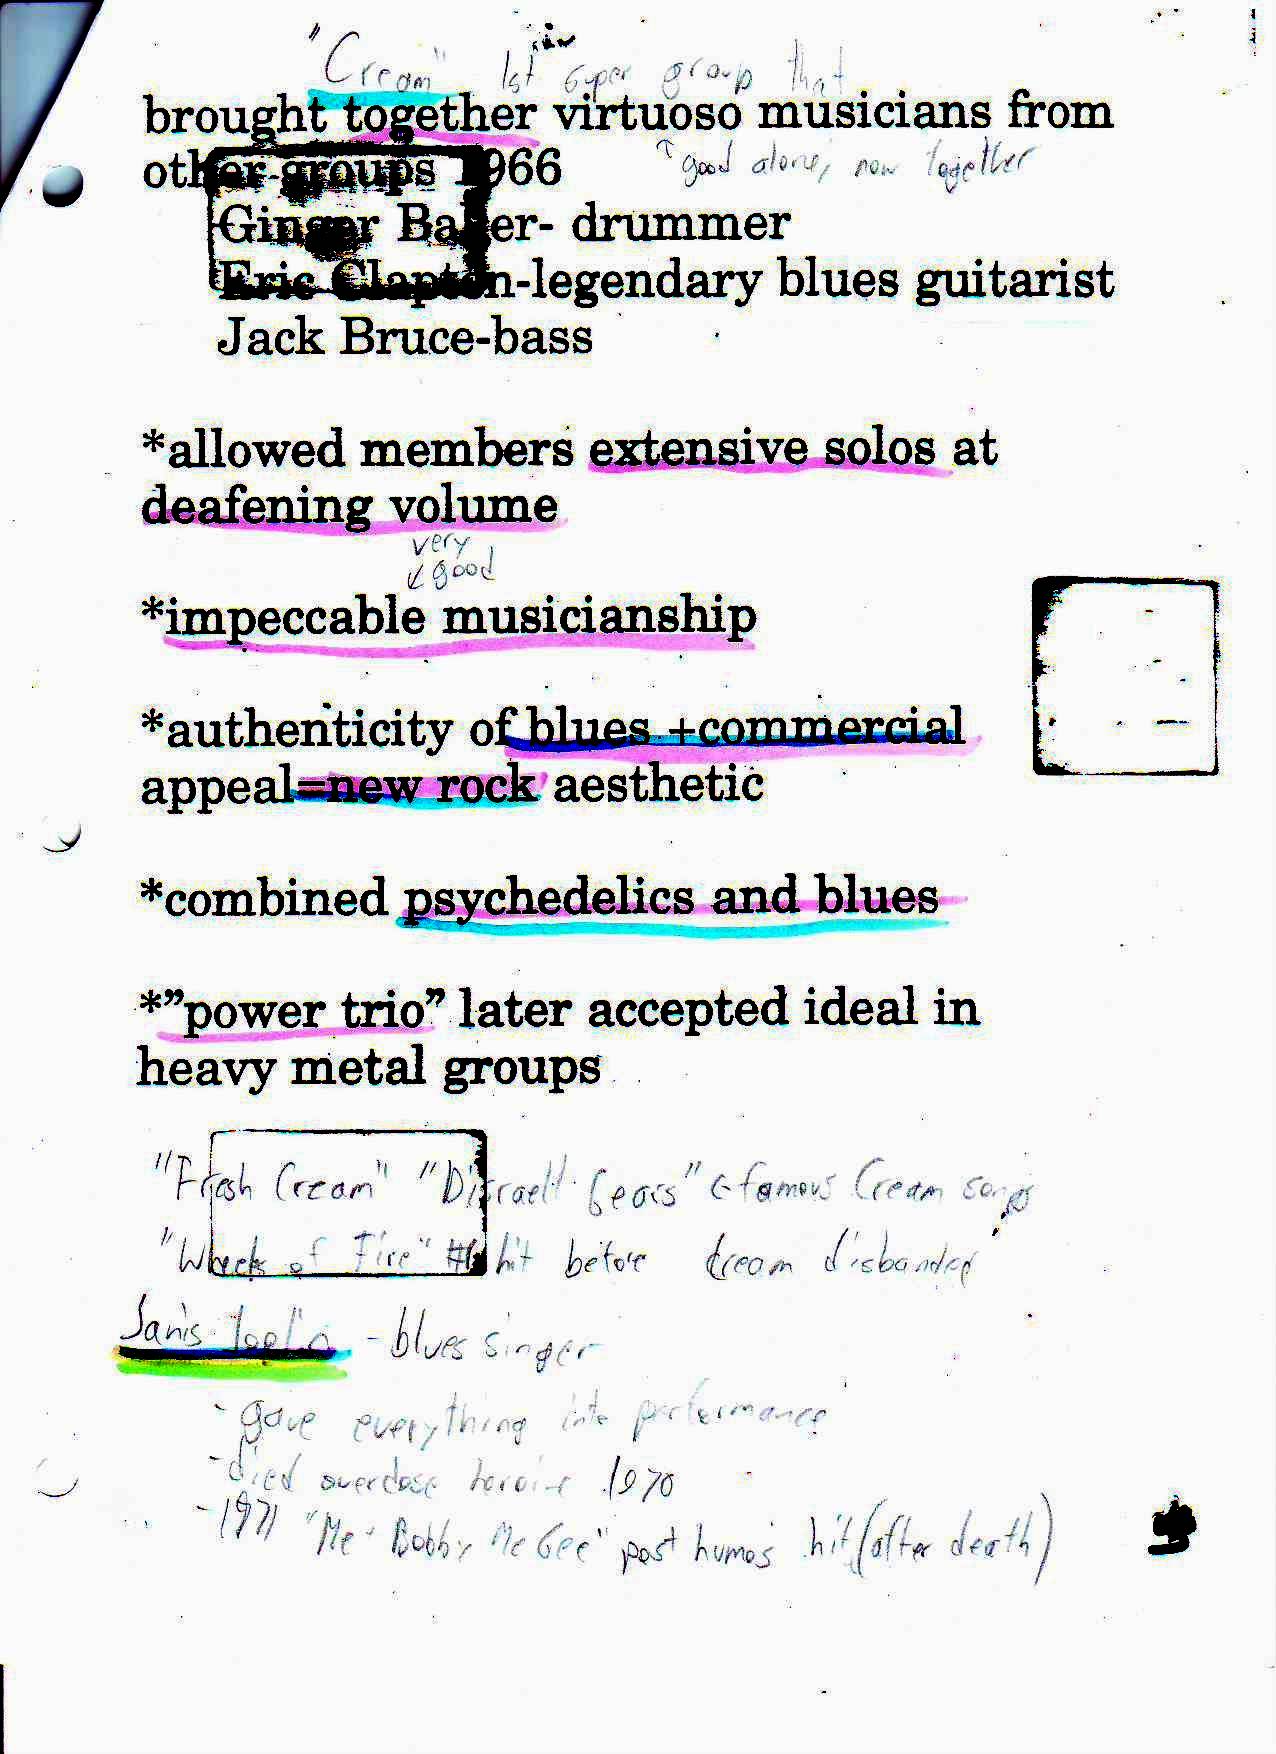 "Cream" 1st super group that
brought together virtuoso musicians from
other groups 1966
good alone, now together
Ginger Baker- drummer
Eric Clapton-legendary blues guitarist
Jack Bruce-bass
*allowed members extensive solos at
deafening volume
very
good
*impeccable musicianship
*authenticity of blues +commercial
appeal=new rock aesthetic
*combined psychedelics and blues
*"power trio" later accepted ideal in
heavy metal groups
"Fresh Cream" "Disraeli Gears" famous Cream songs
of Fire" hit before Cream disbanded
Janis Joplin - blues singer
- gave everything into performance
- died overdose heroine 1970
- 1971 "Me Bobby McGee" post humos hit (after death)